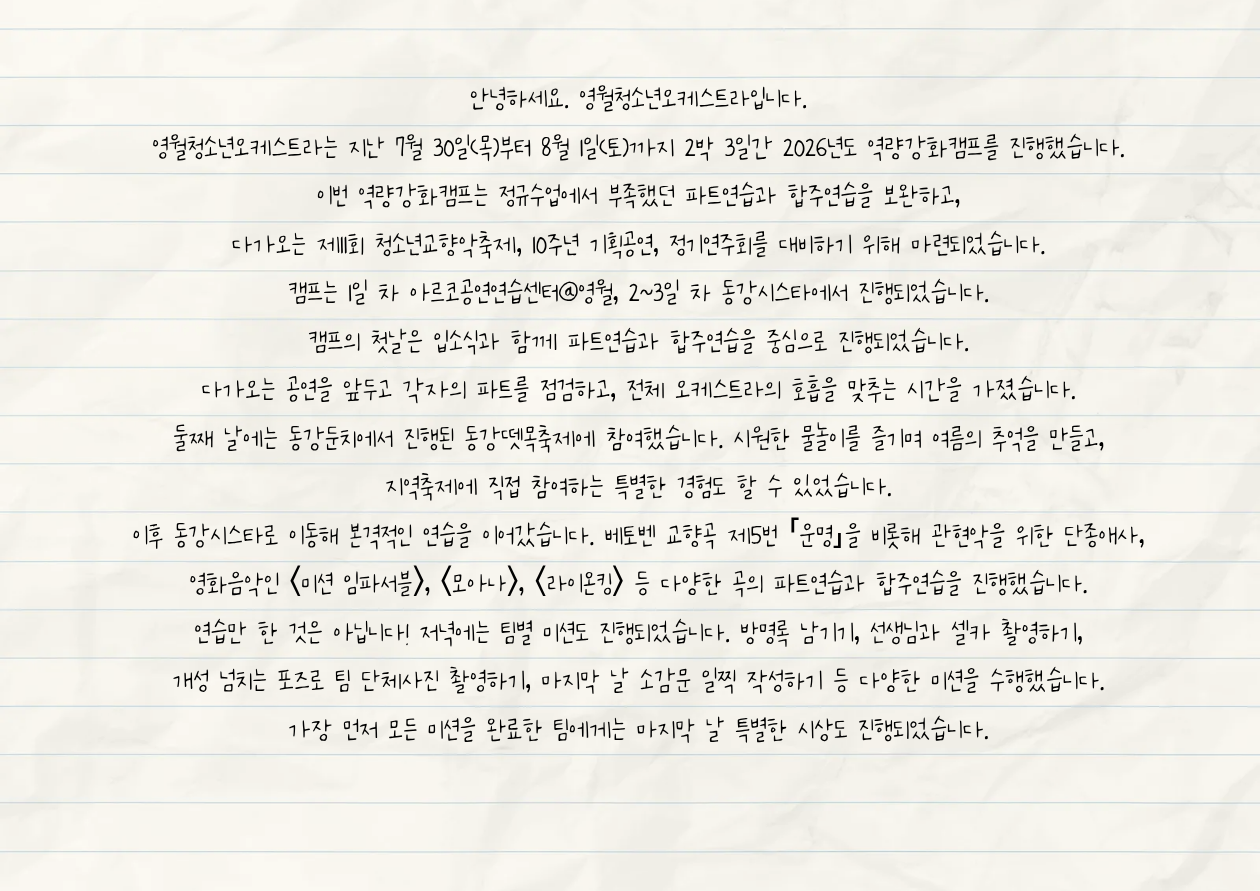 안녕하세요. 영월청소년오케스트라입니다.
영월청소년오케스트라는 지난 7월 30일(목)부터 8월 1일(토)까지 2박 3일간 2026년도 역량강화캠프를 진행했습니다.
이번 역량강화캠프는 정규수업에서 부족했던 파트연습과 합주연습을 보완하고,
다가오는 제111회 청소년교향악축제, 10주년 기획공연, 정기연주회를 대비하기 위해 마련되었습니다.
캠프는 1일 차 아르코공연연습센터@영월, 2~3일 차 동강시스타에서 진행되었습니다.
캠프의 첫날은 입소식과 함께 파트연습과 합주연습을 중심으로 진행되었습니다.
다가오는 공연을 앞두고 각자의 파트를 점검하고, 전체 오케스트라의 호흡을 맞추는 시간을 가졌습니다.
둘째 날에는 동강둔치에서 진행된 동강뗏목축제에 참여했습니다. 시원한 물놀이를 즐기며 여름의 추억을 만들고,
지역축제에 직접 참여하는 특별한 경험도 할 수 있었습니다.
이후 동강시스타로 이동해 본격적인 연습을 이어갔습니다. 베토벤 교향곡 제5번 『운명』을 비롯해 관현악을 위한 단종애사,
영화음악인 〈미션 임파서블〉, 〈모아나〉, 〈라이온킹〉 등 다양한 곡의 파트연습과 합주연습을 진행했습니다.
연습만 한 것은 아닙니다! 저녁에는 팀별 미션도 진행되었습니다. 방명록 남기기, 선생님과 셀카 촬영하기,
개성 넘치는 포즈로 팀 단체사진 촬영하기, 마지막 날 소감문 일찍 작성하기 등 다양한 미션을 수행했습니다.
가장 먼저 모든 미션을 완료한 팀에게는 마지막 날 특별한 시상도 진행되었습니다.